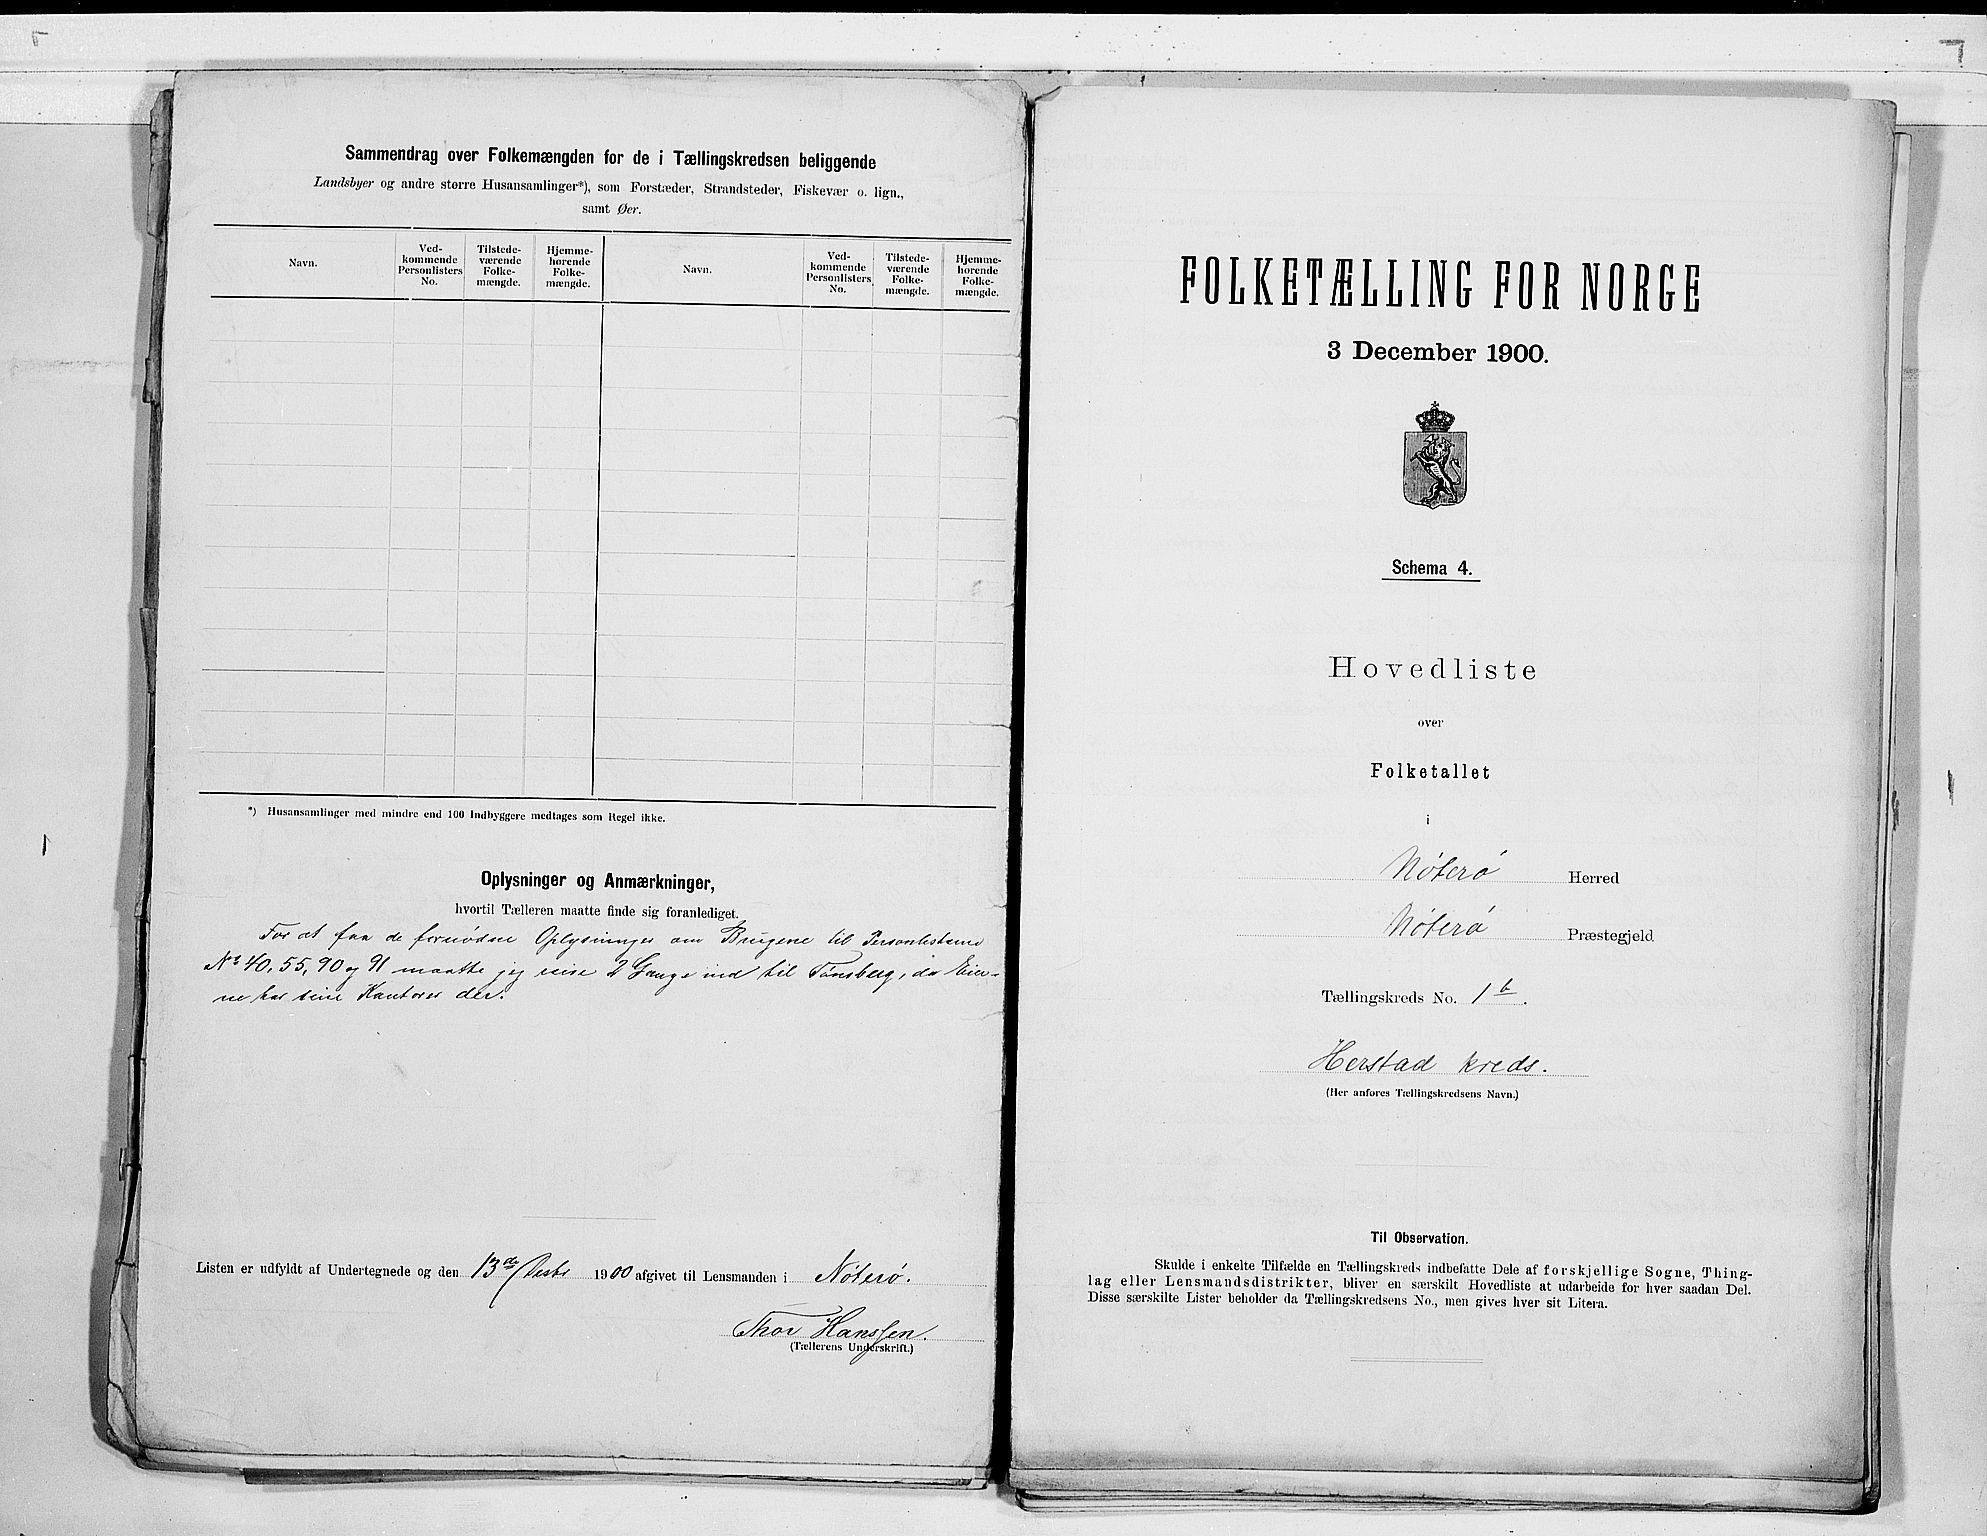 Sammendrag over Folkemængden for de i Tællingskredsen beliggende
Landsbyer og andre større Husansamlinger*), som Forstæder, Strandsteder, Fiskevær o. lign.,
samt Øer.
Navn.
Ved-
kommende
Personlisters
No.
Tilstede-
værende
Folke-
mængde.
Hjemme-
hørende
Folke-
mængde.
Navn.
Ved-
kommende
Personlisters
No.
Tilstede-
værende
Folke-
mængde.
Hjemme-
hørende
Folke-
mængde.
*) Husansamlinger med mindre end 100 Indbyggere medtages som Regel ikke.
Oplysninger og Anmærkninger,
hvortil Tælleren maatte finde sig foranlediget.
For at faa de fornødne Oplysninger om Brugene til Personlisterne
No 40, 55, 90 og 91 maatte jeg reise 2 Gange ind til Tønsberg, da Eier-
ne har sine Kontorer der.
Listen er udfyldt af Undertegnede og den 13de/ Decbr 1900 afgivet til Lensmanden i Nøterø.
Thor Hanssen.
(Tællerens Underskrift.)
FOLKETÆLLING FOR NORGE
3 December 1900.
Schema 4.
Hovedliste
over
Folketallet
i
Nøterø Herred
Nøterø Præstegjeld
Tællingskreds No. 1 b.
Herstad kreds.
(Her anføres Tællingskredsens Navn.)
Til Observation.
Skulde i enkelte Tilfælde en Tællingskreds indbefatte Dele af forskjellige Sogne, Thing-
lag eller Lensmandsdistrikter, bliver en særskilt Hovedliste at udarbeide for hver saadan Del.
Disse særskilte Lister beholder da Tællingskredsens No., men gives hver sit Litera.